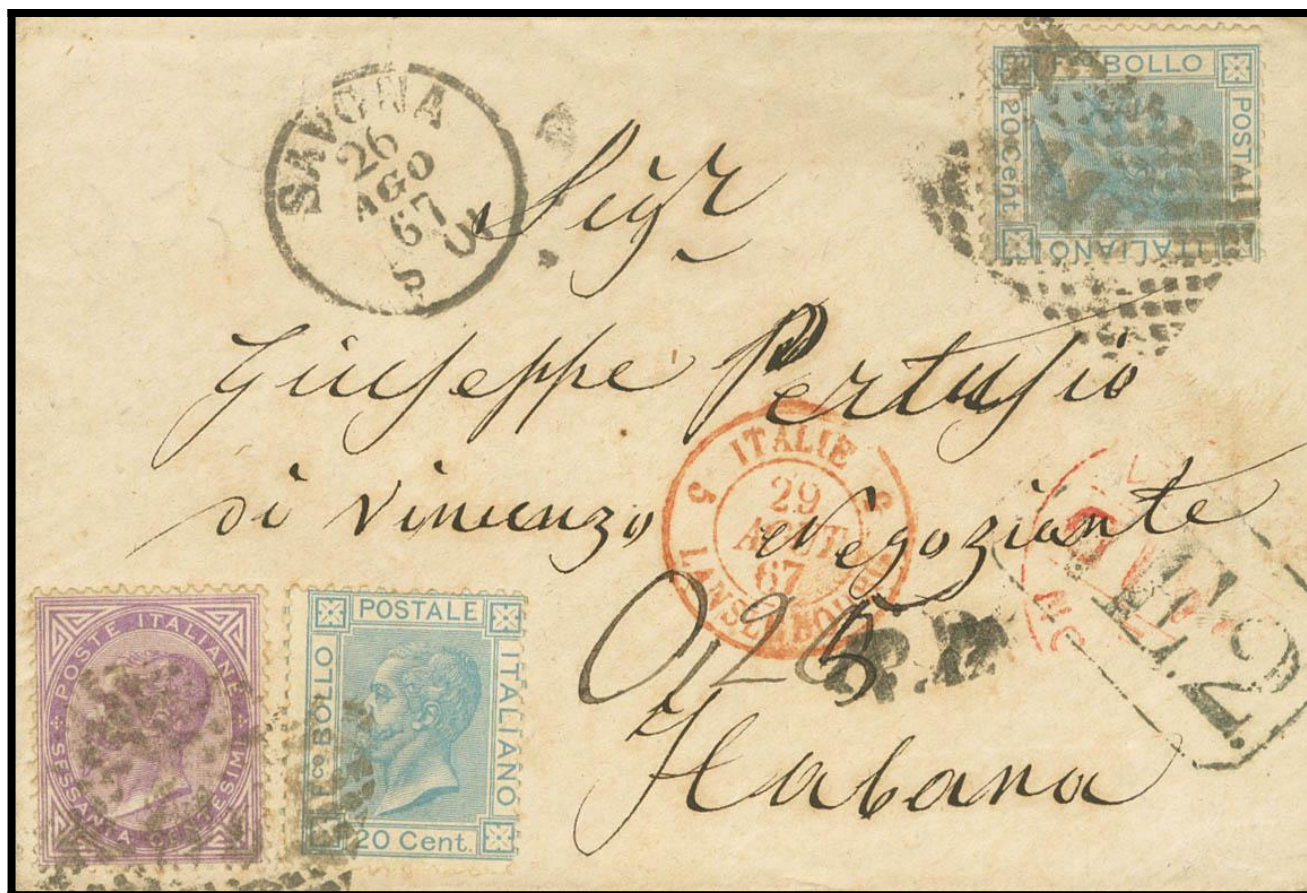 SAVONA
26
AGO
67
Fco BOLLO
POSTALE
ITALIANO
20 Cent.
Sigr
Giuseppe Pertusio
di Vincenzo Negoziante
5 ITALIE 5
29
AOUT
67
LANSLEBOURG
E.2.
P.D.
Habana
POSTE ITALIANE
SESSANTA CENTESIMI
POSTALE
Fco BOLLO
ITALIANO
20 Cent.